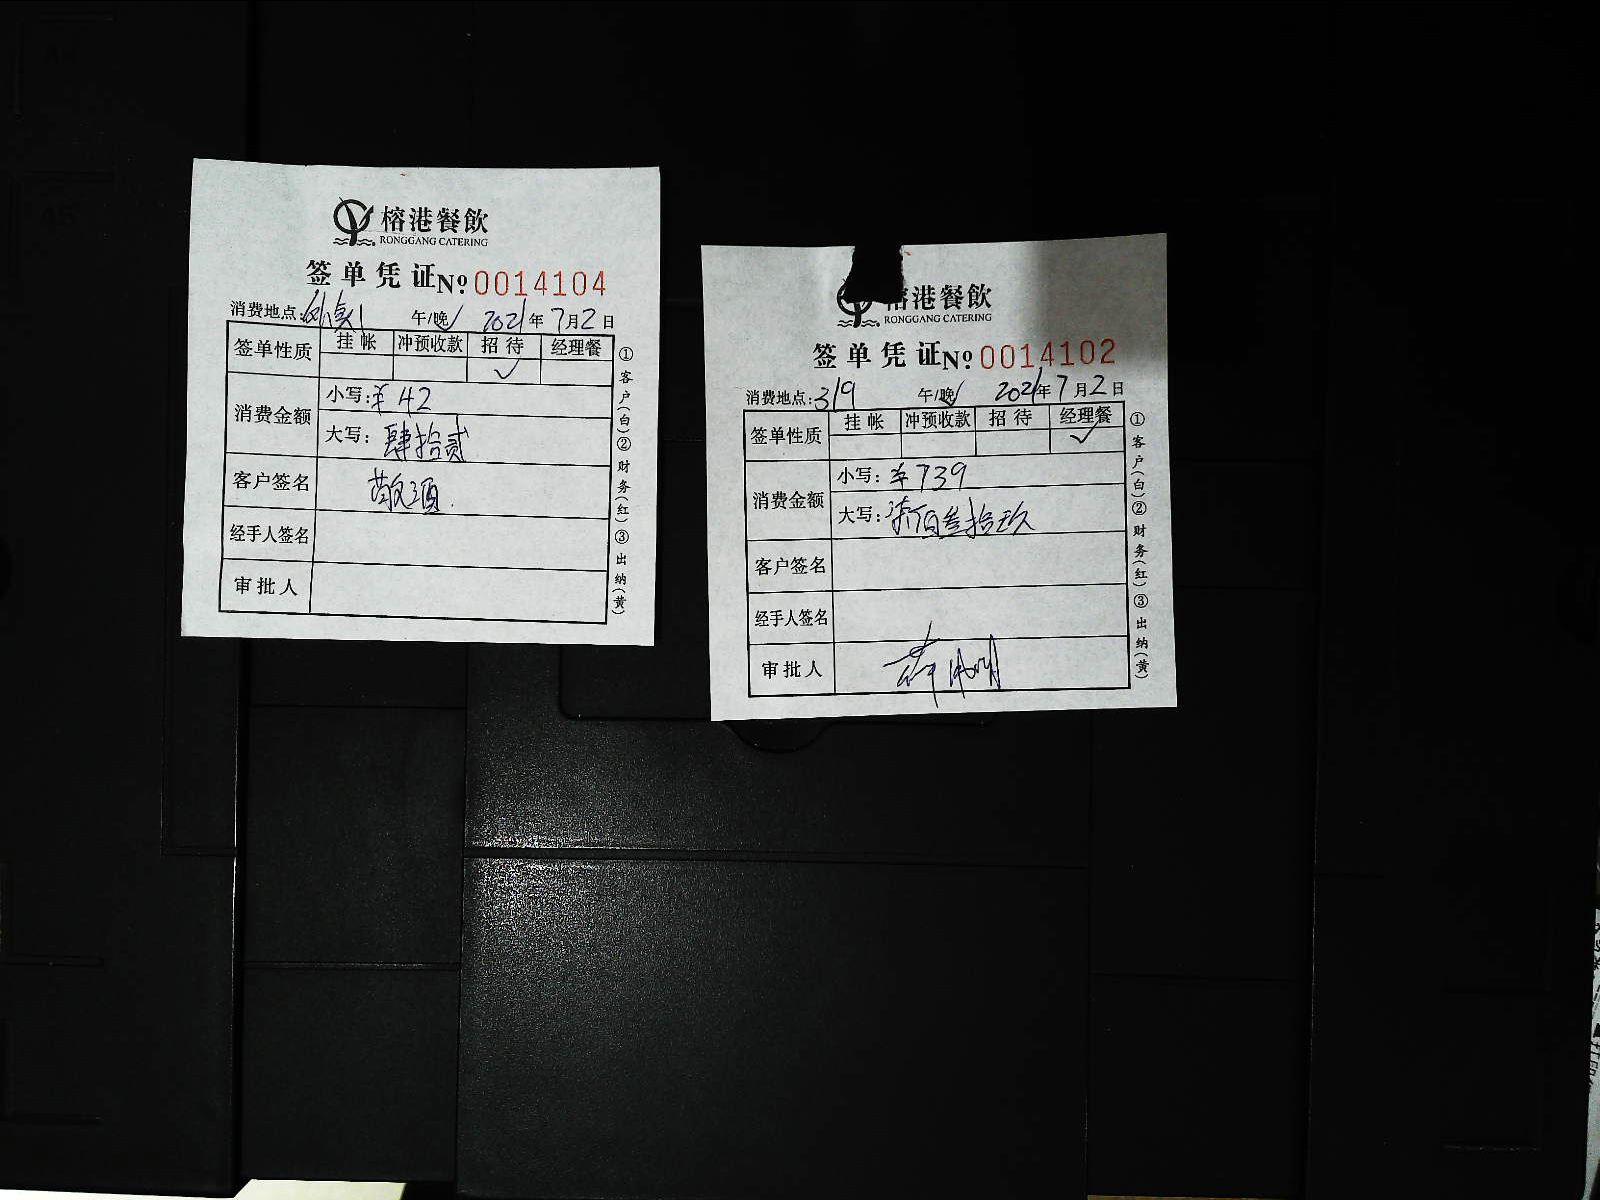 榕港餐飲
RONGGANG CATERING
签单凭证№0014104
消费地点: 午/晚 2021年7月2日
签单性质 挂帐 冲预收款 招待 经理餐
✓
消费金额 小写:¥42
大写:肆拾贰
客户签名 敬酒.
经手人签名
审批人
①客户(白)②财务(红)③出纳(黄)
榕港餐飲
RONGGANG CATERING
签单凭证№0014102
消费地点:319 午/晚 2021年7月2日
签单性质 挂帐 冲预收款 招待 经理餐
✓
消费金额 小写:¥739
大写:柒佰叁拾玖
客户签名
经手人签名
审批人
①客户(白)②财务(红)③出纳(黄)